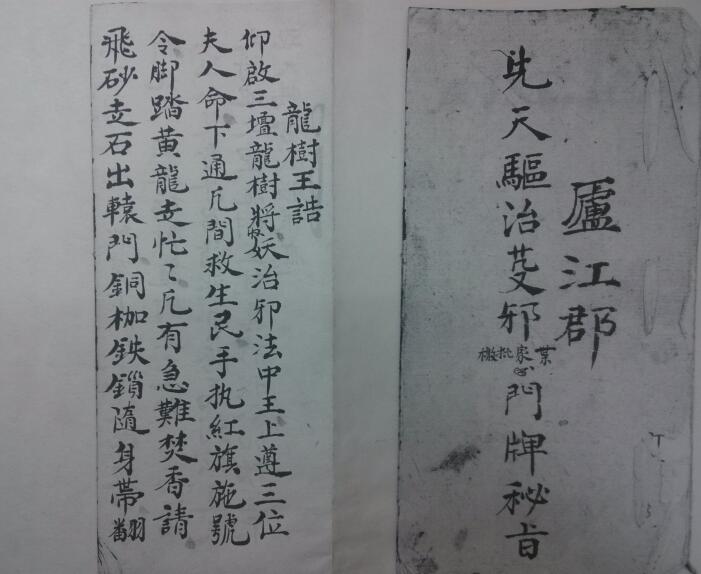 廬江郡
先天驅治邪門牌秘旨
葉家批檄
龍樹王誥
仰啟三壇龍樹將收妖治邪法中王上遵三位
夫人命下通凡間救生民手执紅旗施號
令脚踏黃龍走忙〻凡有急難焚香請
飛砂走石出轅門銅枷鉄鎖隨身帶翻